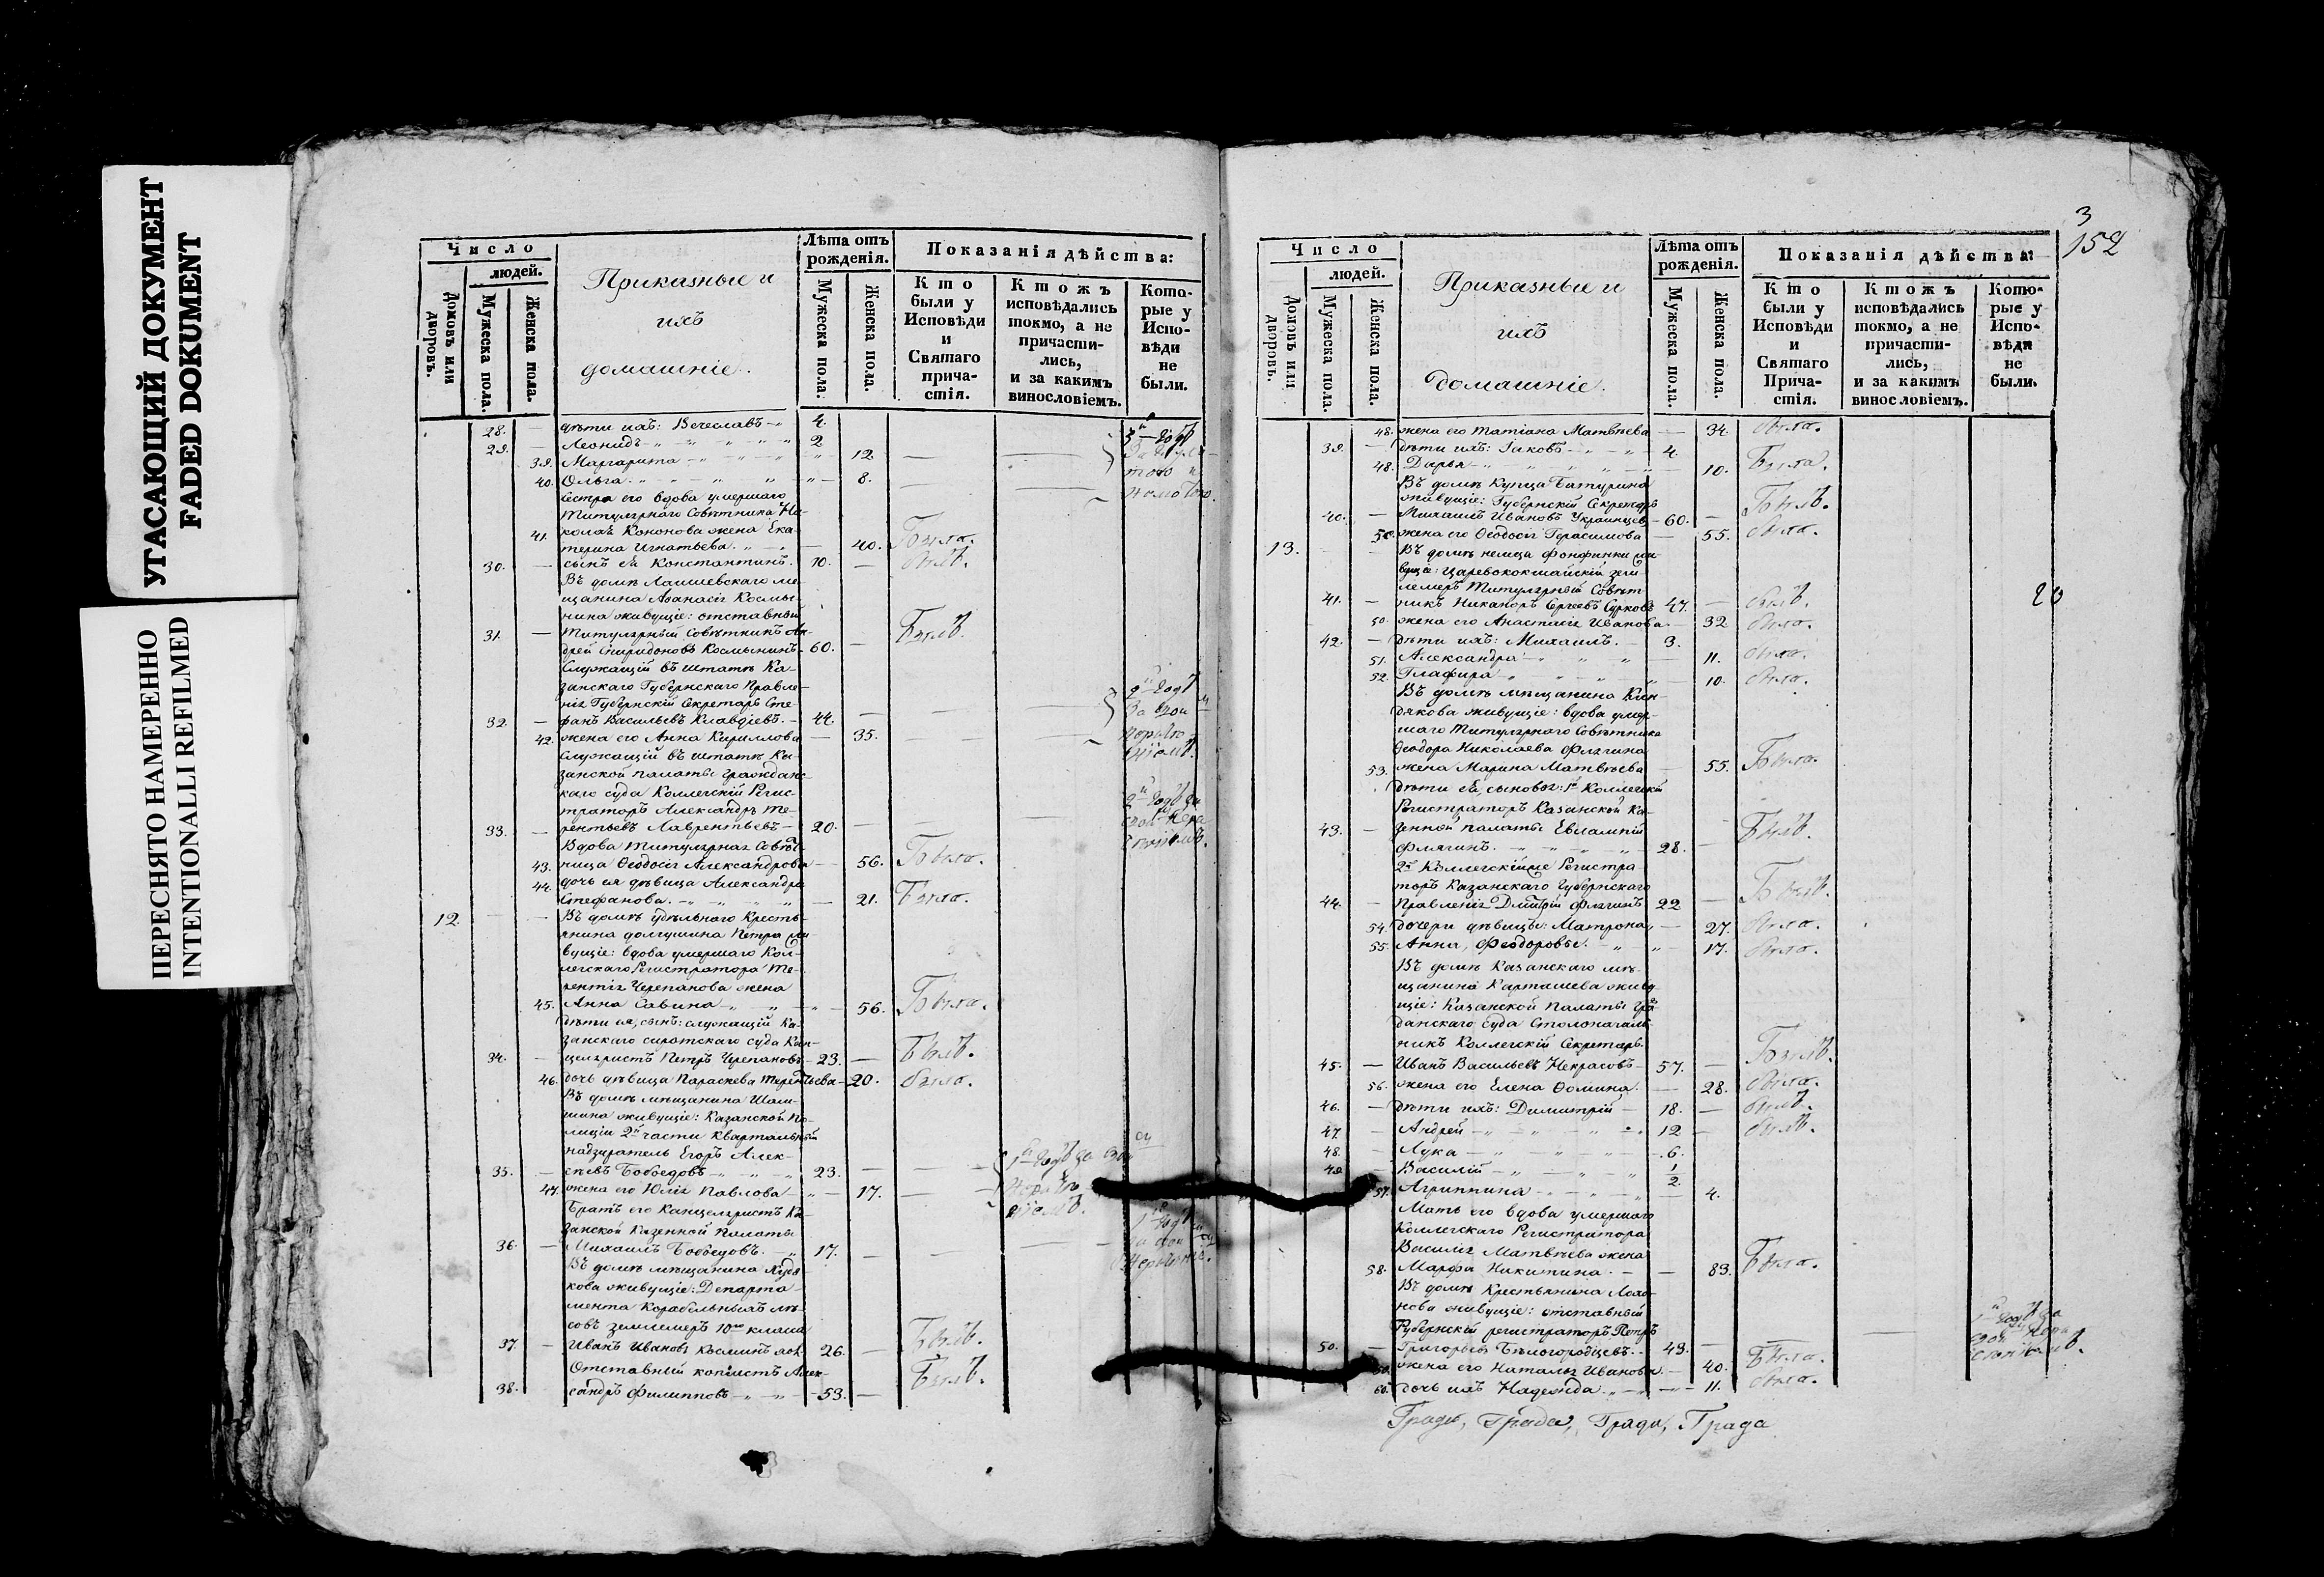 УГАСАЮЩИЙ ДОКУМЕНТ
FADED DOKUMENT
ПЕРЕСНЯТО НАМЕРЕННО
INTENTIONALLI REFILMED
Число
людей.
Домовъ или дворовъ.
Мужеска пола.
Женска пола.
Приказные и
ихъ
домашніе.
Лѣта отъ рожденія.
Мужеска пола.
Женска пола.
Показанія дѣйства:
Кто были у Исповѣди и Святаго причастія.
Ктожъ исповѣдались токмо, а не причастились, и за какимъ винословіемъ.
Которые у Исповѣди не были.
28. — дѣти ихъ: Вечеславъ 4.
29. — Леонидъ 2 3й годъ
39. Маргарита 12.
40. Ольга 8.
Сестра его вдова умершаго
Титулярнаго Совѣтника Ни-
41. колая Кононова жена Ека-
терина Игнатьева. — 40. Была.
30. — сынъ ея Константинъ. 10. — былъ.
Въ домѣ Лаишевскаго ме-
щанина Аѳанасія Космы-
нина живущіе: отставный
31. — Титулярный Совѣтникъ Ан-
дрей Спиридоновъ Космынинъ 60. — Былъ.
Служащій въ штатѣ Ка-
занскаго Губернскаго Правле-
нія Губернскій Секретарь Сте- 2й годъ
32. — фанъ Васильевъ Клавдіевъ. 44. —
42. жена его Анна Кирилова — 35.
Служащій въ штатѣ Ка-
занской палаты граждан-
скаго суда Коллегскій Регис-
траторъ Александръ Те- 2й годъ за
33. — рентьевъ Лаврентьевъ 20.
Вдова Титулярная Совѣт-
43. ница Ѳеодосія Александрова — 56. Была.
44. дочь ея дѣвица Александра
Стефанова. — 21. Была.
12. — — Въ домѣ удѣльнаго Кресть-
янина Долгушина Петра жи-
вущіе: вдова умершаго Кол-
легскаго Регистратора Те-
рентія Черепанова жена
45. Анна Савина 56. Была.
дѣти ея, сынъ: служащій Ка-
занскаго сиротскаго суда Кан-
34. — целяристъ Петръ Черепановъ 23. — Былъ.
46. дочь дѣвица Параскева Терентьева 20. была.
Въ домѣ мѣщанина Шам-
шина живущіе: Казанской По-
лиціи 2й части Квартальный
надзиратель Егоръ Алек-
35. — сѣевъ Бобоедовъ 23. 1й годъ за свои
47. жена его Юлія Павлова 17.
Братъ его Канцеляристъ Ка-
занской Казенной Палаты 1й годъ
36. — Михаилъ Бобоедовъ. 17.
Въ домѣ мѣщанина
кова живущіе: Департа-
мента Корабельныхъ лѣ-
совъ землемеръ 10го класса
37. — Иванъ Ивановъ 26. — Былъ.
Отставный копіистъ Алек-
38. сандръ Филипповъ 53. — Былъ.
3
152
Число
людей.
Домовъ или дворовъ.
Мужеска пола.
Женска пола.
Приказные и
ихъ
домашніе.
Лѣта отъ рожденія.
Мужеска пола.
Женска пола.
Показанія дѣйства:
Кто были у Исповѣди и Святаго Причастія.
Ктожъ исповѣдались токмо, а не причастились, и за какимъ винословіемъ.
Которые у Исповѣди не были.
48. жена его Татіана Матвѣева — 34. была.
39. — дѣти ихъ: Іаковъ 4.
48. Дарья 10. Была.
Въ домѣ Купца Батурина
живущіе: Губернскій Секретарь
40. — Михаилъ Ивановъ Украинцев 60. — Былъ.
жена его Ѳеодосія Герасимова — 55. была.
13. — — Въ домѣ немца Фонфинки жи-
вущіе: Царевококшайскій зем-
лемеръ Титулярный Совѣт-
41. — никъ Никаноръ Сергеевъ Сурковъ 47. — былъ. 20
50. жена его Анастасія Иванова. — 32 была.
42. — дѣти ихъ: Михаилъ. 3.
51. Александра — 11. была.
52. Глафира 10. была.
Въ домѣ мѣщанина
дякова живущіе: вдова умер-
шаго Титулярнаго Совѣтника
Ѳеодора Николаева Флягина
53. жена Марина Матвѣева — 55. Была.
дѣти ея, сыновья: 1й Коллегскій
Регистраторъ Казанской Ка-
43. — зенной палаты Евлампій
Флягинъ. 28. — Былъ.
2й Коллегскійже Регистра-
торъ Казанскаго Губернскаго
44. — Правленія Дмитрій Флягинъ 22 — Былъ.
54. дочери дѣвицы: Матрона, — 27. была.
55. Анна, Феодоровы. 17. была.
Въ домѣ Казанскаго мѣ-
щанина Карташева живу-
щіе: Казанской Палаты Гра-
данскаго суда Столоначаль-
никъ Коллегскій Секретарь
45. — Иванъ Васильевъ Некрасовъ 57. — Былъ.
56. жена его Елена Ѳомина. — 28. была.
46. — дѣти ихъ: Димитрій 18. — былъ.
47. — Андрей 12 — былъ.
48. — Лука 6.
49. — Василій 1/2
57. Агриппина 4.
Мать его вдова умершаго
Коллегскаго Регистратора
Василія Матвѣева жена
58. Марфа Никитина. — 83. Была.
Въ домѣ Крестьянина
нова живущіе: отставный
Губернскій регистраторъ Петръ
50. — Григорьевъ Бѣлогородцевъ. 49. — 1й годъ за
жена его Наталья Иванова. — 40. Была.
60. дочь ихъ Надежда 11. была.
Града, Града, Града, Града